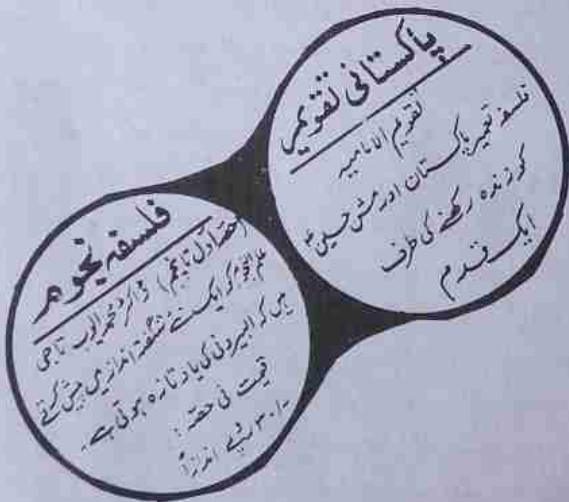 پاکستانی تقویم
تقویم الامامیہ
فلسفہ تعمیر پاکستان اور مشن حسینؑ
کو زندہ رکھنے کی طرف
ایک قدم
فلسفہ نجوم
(حصہ اول تا پنجم) ڈاکٹر محمد ایوب تاجی
علم النجوم کو ایک نئے شگفتہ انداز میں پیش کرتے
ہیں کہ البیرونی کی یاد تازہ ہوتی ہے۔
قیمت فی حصہ :
۳۰/- روپے اندازاً